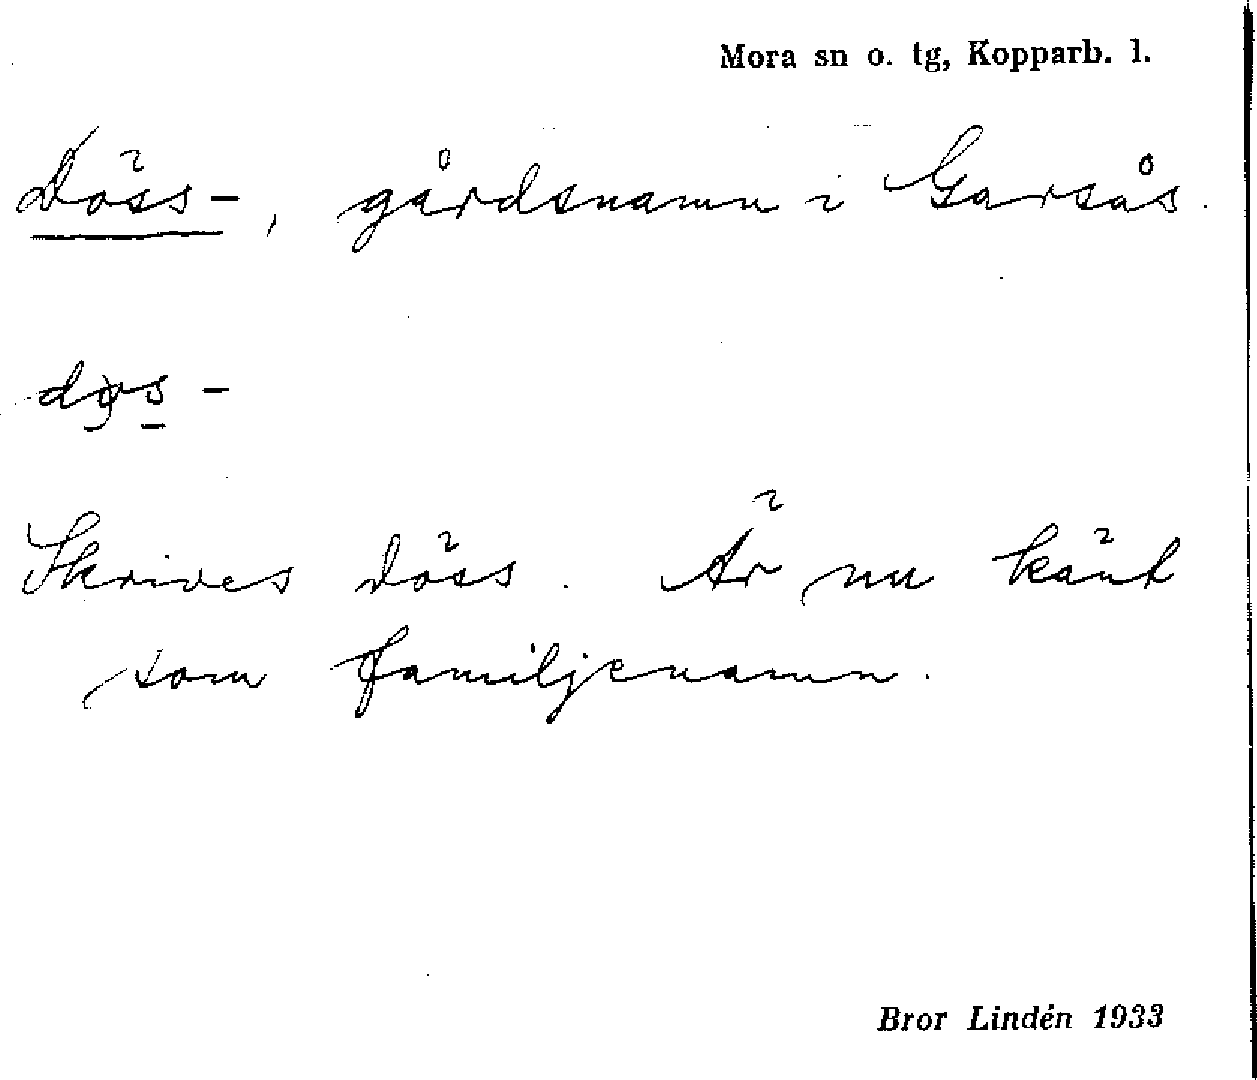 Mora sn o. tg, Kopparb. l.
Döss-, gårdsnamn i Garsås.
Skrives Döss. Är nu känt
som familjenamn.
Bror Lindén 1933